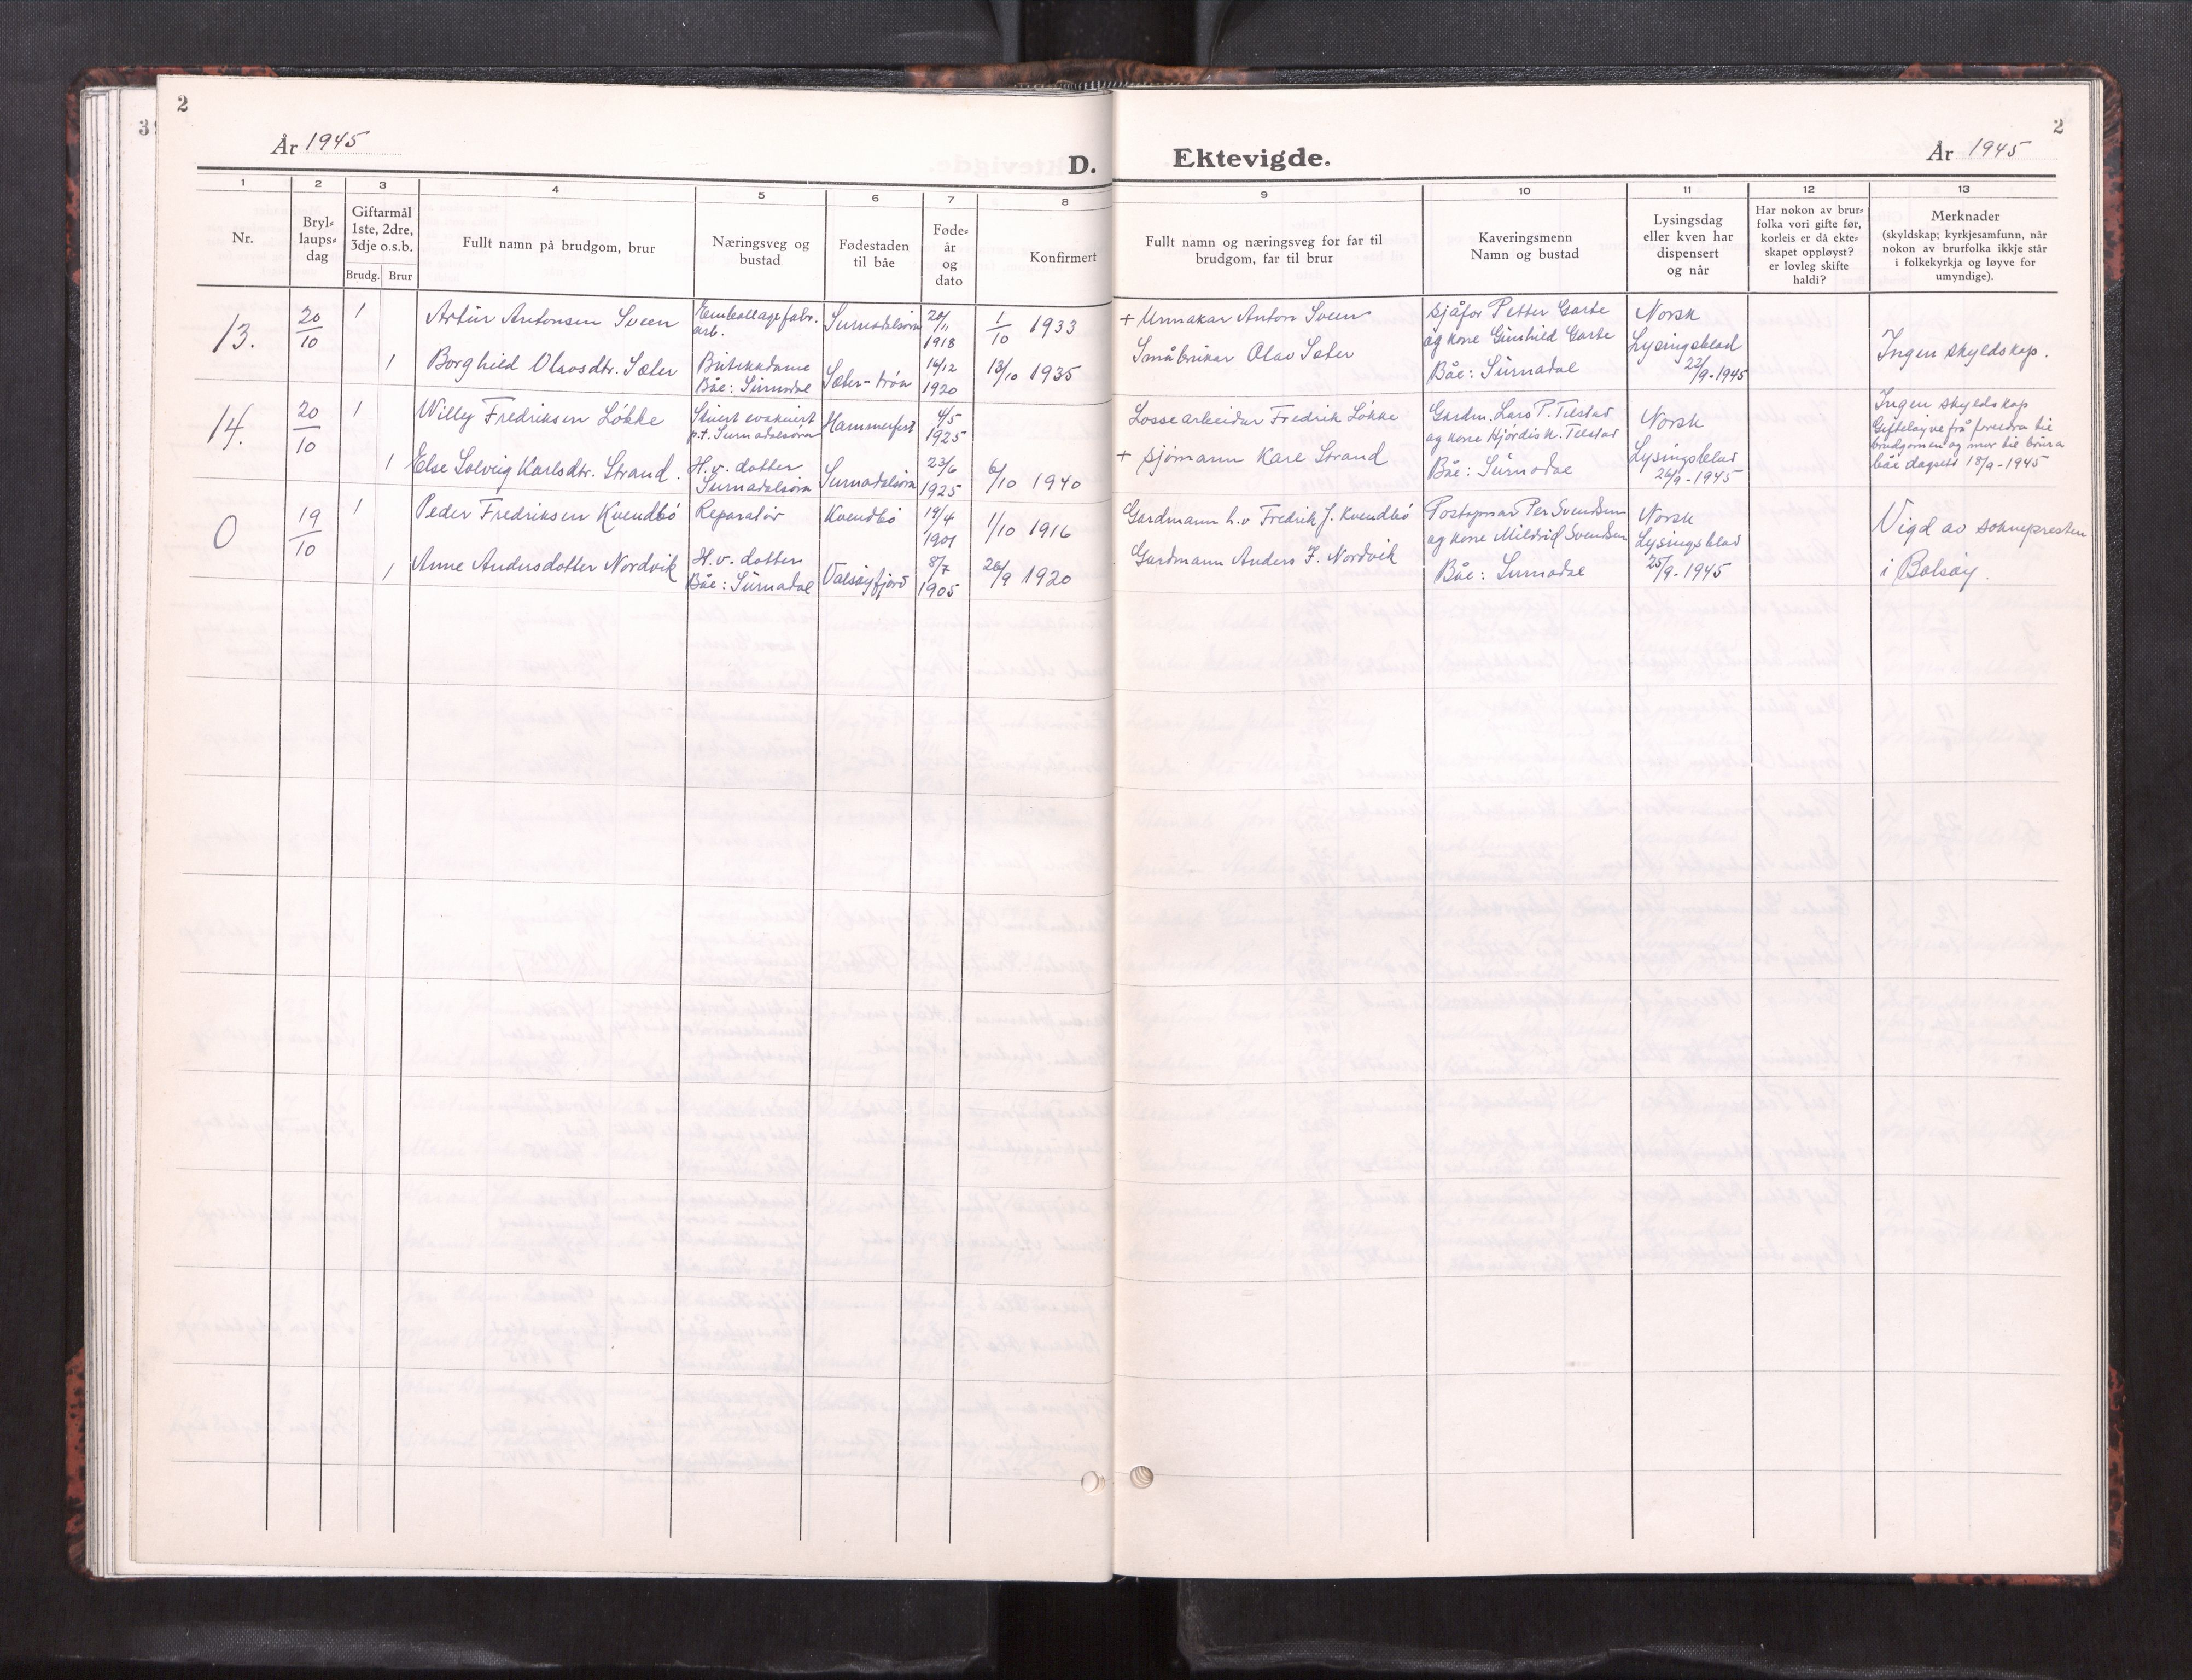 2
År 1945
D.
Ektevigde.
År 1945
2
1 2 3 4 5 6 7 8 9 10 11 12 13
Nr.
Bryl-
laups-
dag
Giftarmål
1ste, 2dre,
3dje o.s.b.
Brudg. Brur
Fullt namn på brudgom, brur
Næringsveg og
bustad
Fødestaden
til båe
Føde-
år
og
dato
Konfirmert
Fullt namn og næringsveg for far til
brudgom, far til brur
Kaveringsmenn
Namn og bustad
Lysingsdag
eller kven har
dispensert
og når
Har nokon av brur-
folka vori gifte før,
korleis er då ekte-
skapet oppløyst?
er lovleg skifte
haldi?
Merknader
(skyldskap; kyrkjesamfunn, når
nokon av brurfolka ikkje står
i folkekyrkja og løyve for
umyndige).
13.
20/10
1
Artur Antonsen Sveen
Emballagefabr.
arb.
Surnadalsøra
20/11
1918
1/10 1933
+ Urmakar Anton Sveen
Sjåfør Petter Garte
og kone Gunhild Garte
Båe: Surnadal
Norsk
Lysingsblad
22/9-1945
Ingen skyldskap.
1
Borghild Olavsdtr. Sæter
Butikkdame
Båe: Surnadal
Sæter-trøa
14/12
1920
13/10 1935
Småbrukar Olav Sæter
14.
20/10
1
Willy Fredriksen Løkke
Stuert evakuert
p.t. Surnadalsøra
Hammerfest
4/5
1925
Lossearbeidar Fredrik Løkke
Gardm. Lars P. Telstad
og kone Hjørdis K. Telstad
Båe: Surnadal
Norsk
Lysingsblad
26/9-1945
Ingen skyldskap
Gifteløyve frå foreldra til
brudgomen og mor til brura
båe dagsett 18/9-1945
1
Else Solveig Karlsdtr. Strand.
H.v. dotter
Surnadalsøra
Surnadalsøra
23/6
1925
6/10 1940
+ Sjømann Kare Strand
0
19/10
1
Peder Fredriksen Kvendbø
Reparatør
Kvendbø
19/4
1901
1/10 1916
Gardmann h.v Fredrik J. Kvendbø
Postopnar Per Svendsen
og kone Mildrid Svendsen
Båe: Surnadal
Norsk
Lysingsblad
25/9-1945
Vigd av soknepresten
i Bolsøy.
1
Anne Andersdotter Nordvik
H.v. dotter
Båe: Surnadal
Valsøyfjord
8/7
1905
26/9 1920
Gardmann Anders J. Nordvik